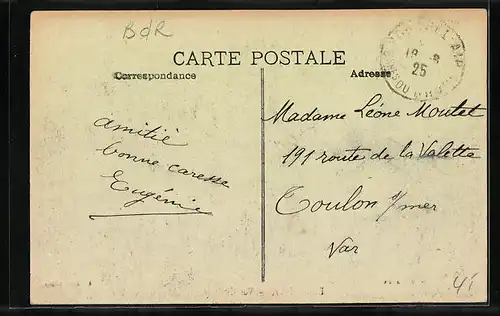 BdR
CARTE POSTALE
Correspondance
Adresse
18
25
amitié
bonne caresse
Eugénie
Madame Léone Moutet
191 route de la Valette
Toulon s/mer
Var